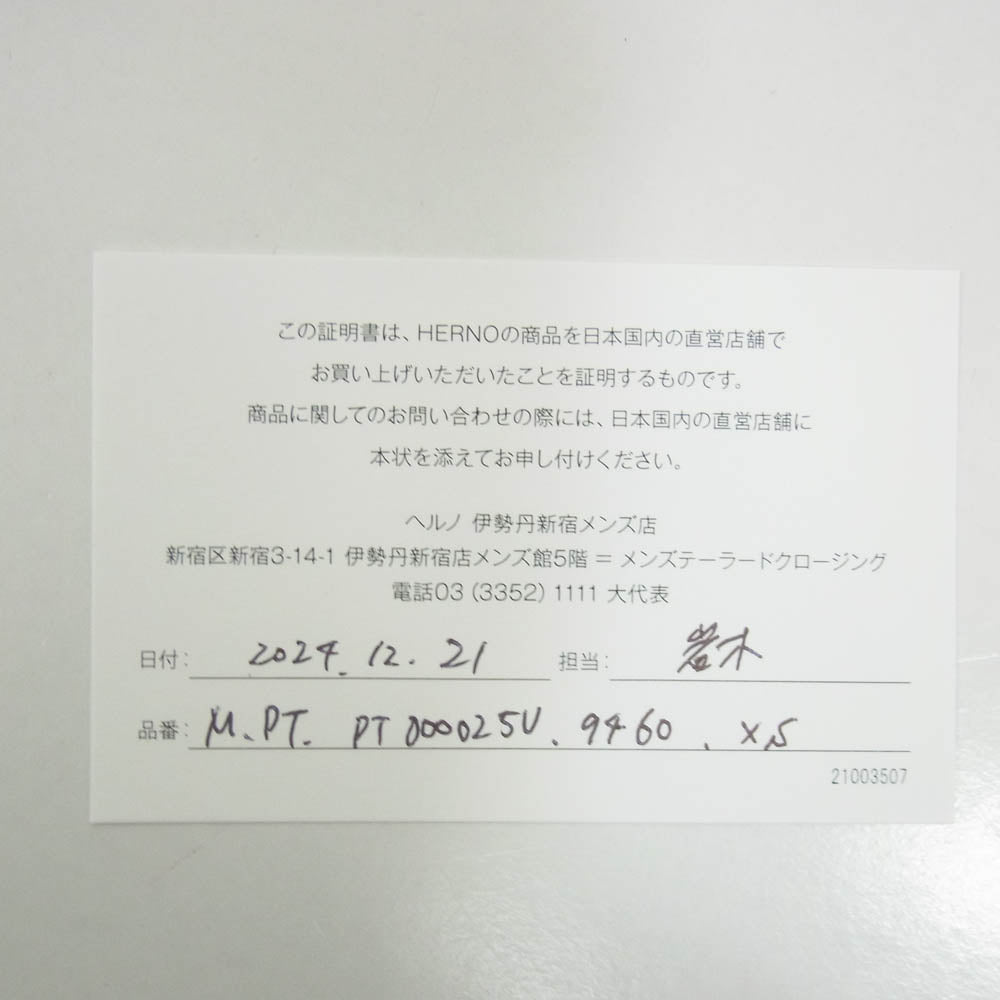 この証明書は、HERNOの商品を日本国内の直営店舗で
お買い上げいただいたことを証明するものです。
商品に関してのお問い合わせの際には、日本国内の直営店舗に
本状を添えてお申し付けください。
ヘルノ 伊勢丹新宿メンズ店
新宿区新宿3-14-1 伊勢丹新宿店メンズ館5階 = メンズテーラードクロージング
電話03 (3352) 1111 大代表
日付: 2024. 12. 21 担当: 岩木
品番: M. PT. PT000025U. 9460. XS
21003507